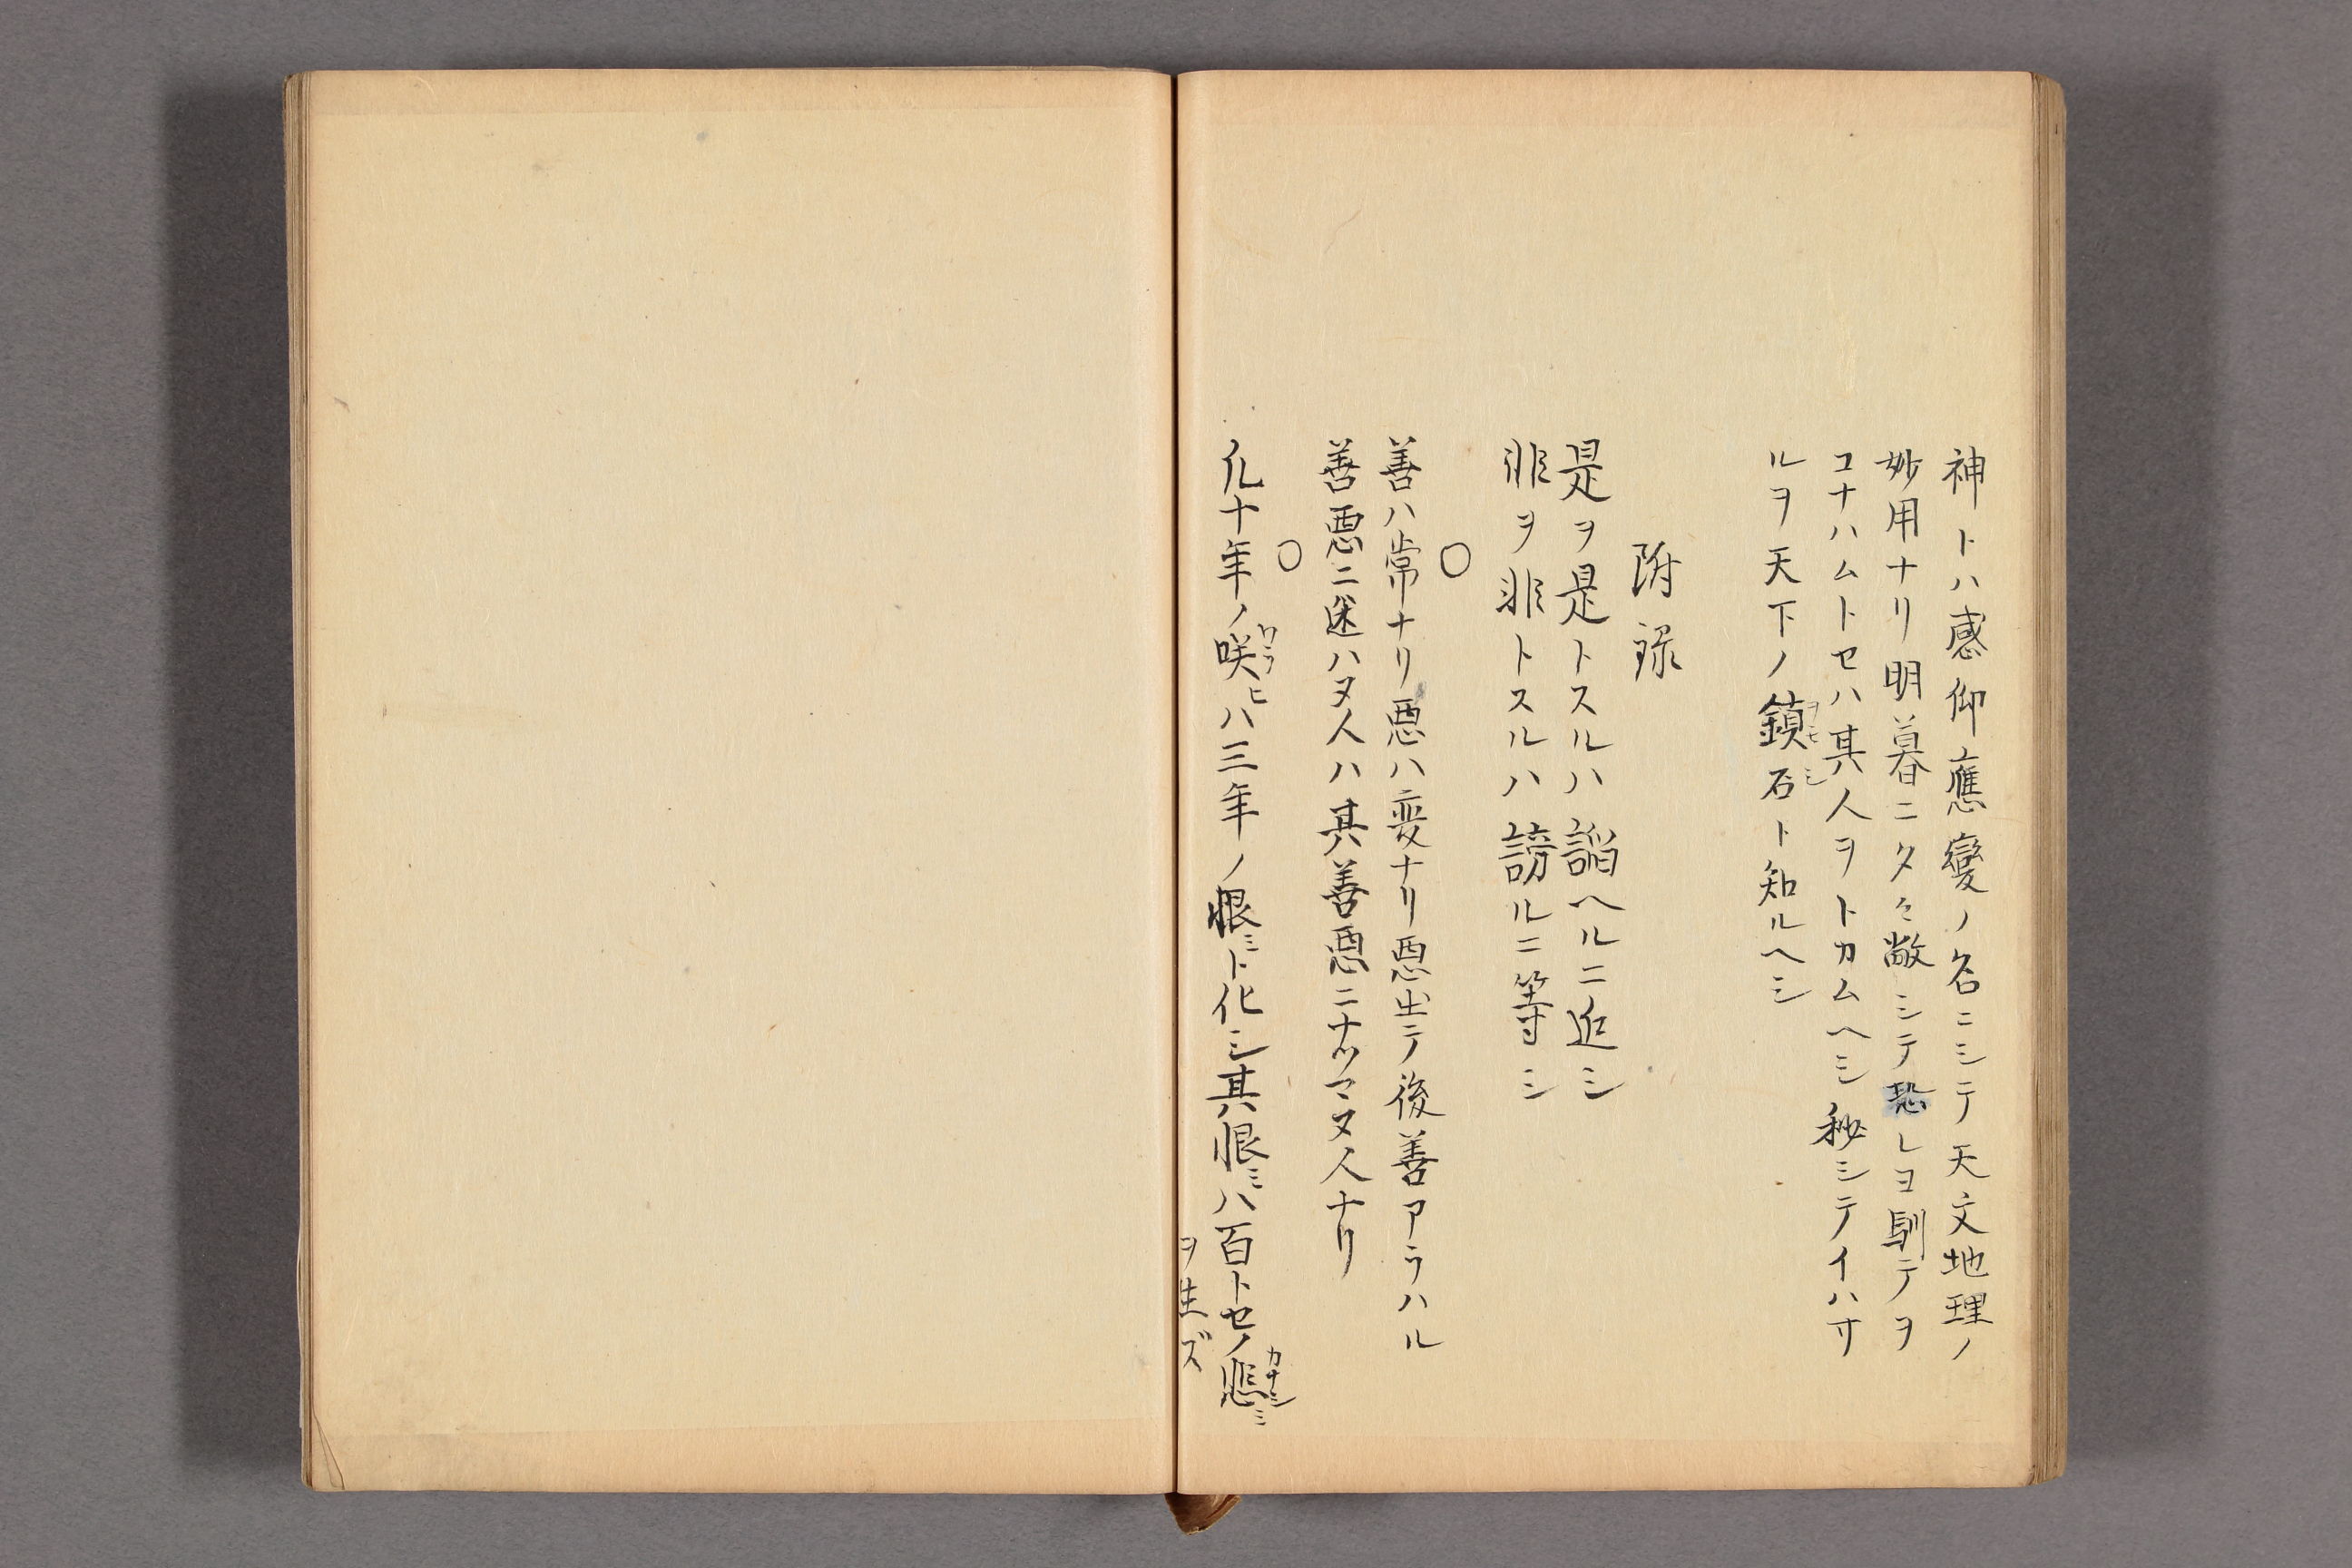 神トハ感仰應變ノ名ニシテ天文地理ノ
妙用ナリ明暮ニタ々敬シテ恐レヨ馴テヲ
コナハムトセハ其人ヲトカムヘシ秘シテイハサ
ルヲ天下ノ鎮石ト知ルヘシ
附録
是ヲ是トスルハ諂ヘルニ近シ
非ヲ非トスルハ謗ルニ等シ
○
善ハ常ナリ悪ハ変ナリ悪出テ後善アラハル
善悪ニ迷ハヌ人ハ其善悪ニナツマヌ人ナリ
○
凡十年ノ咲ヒハ三年ノ恨ミト化シ其恨ミハ百トセノ悲ミ
ヲ生ズ